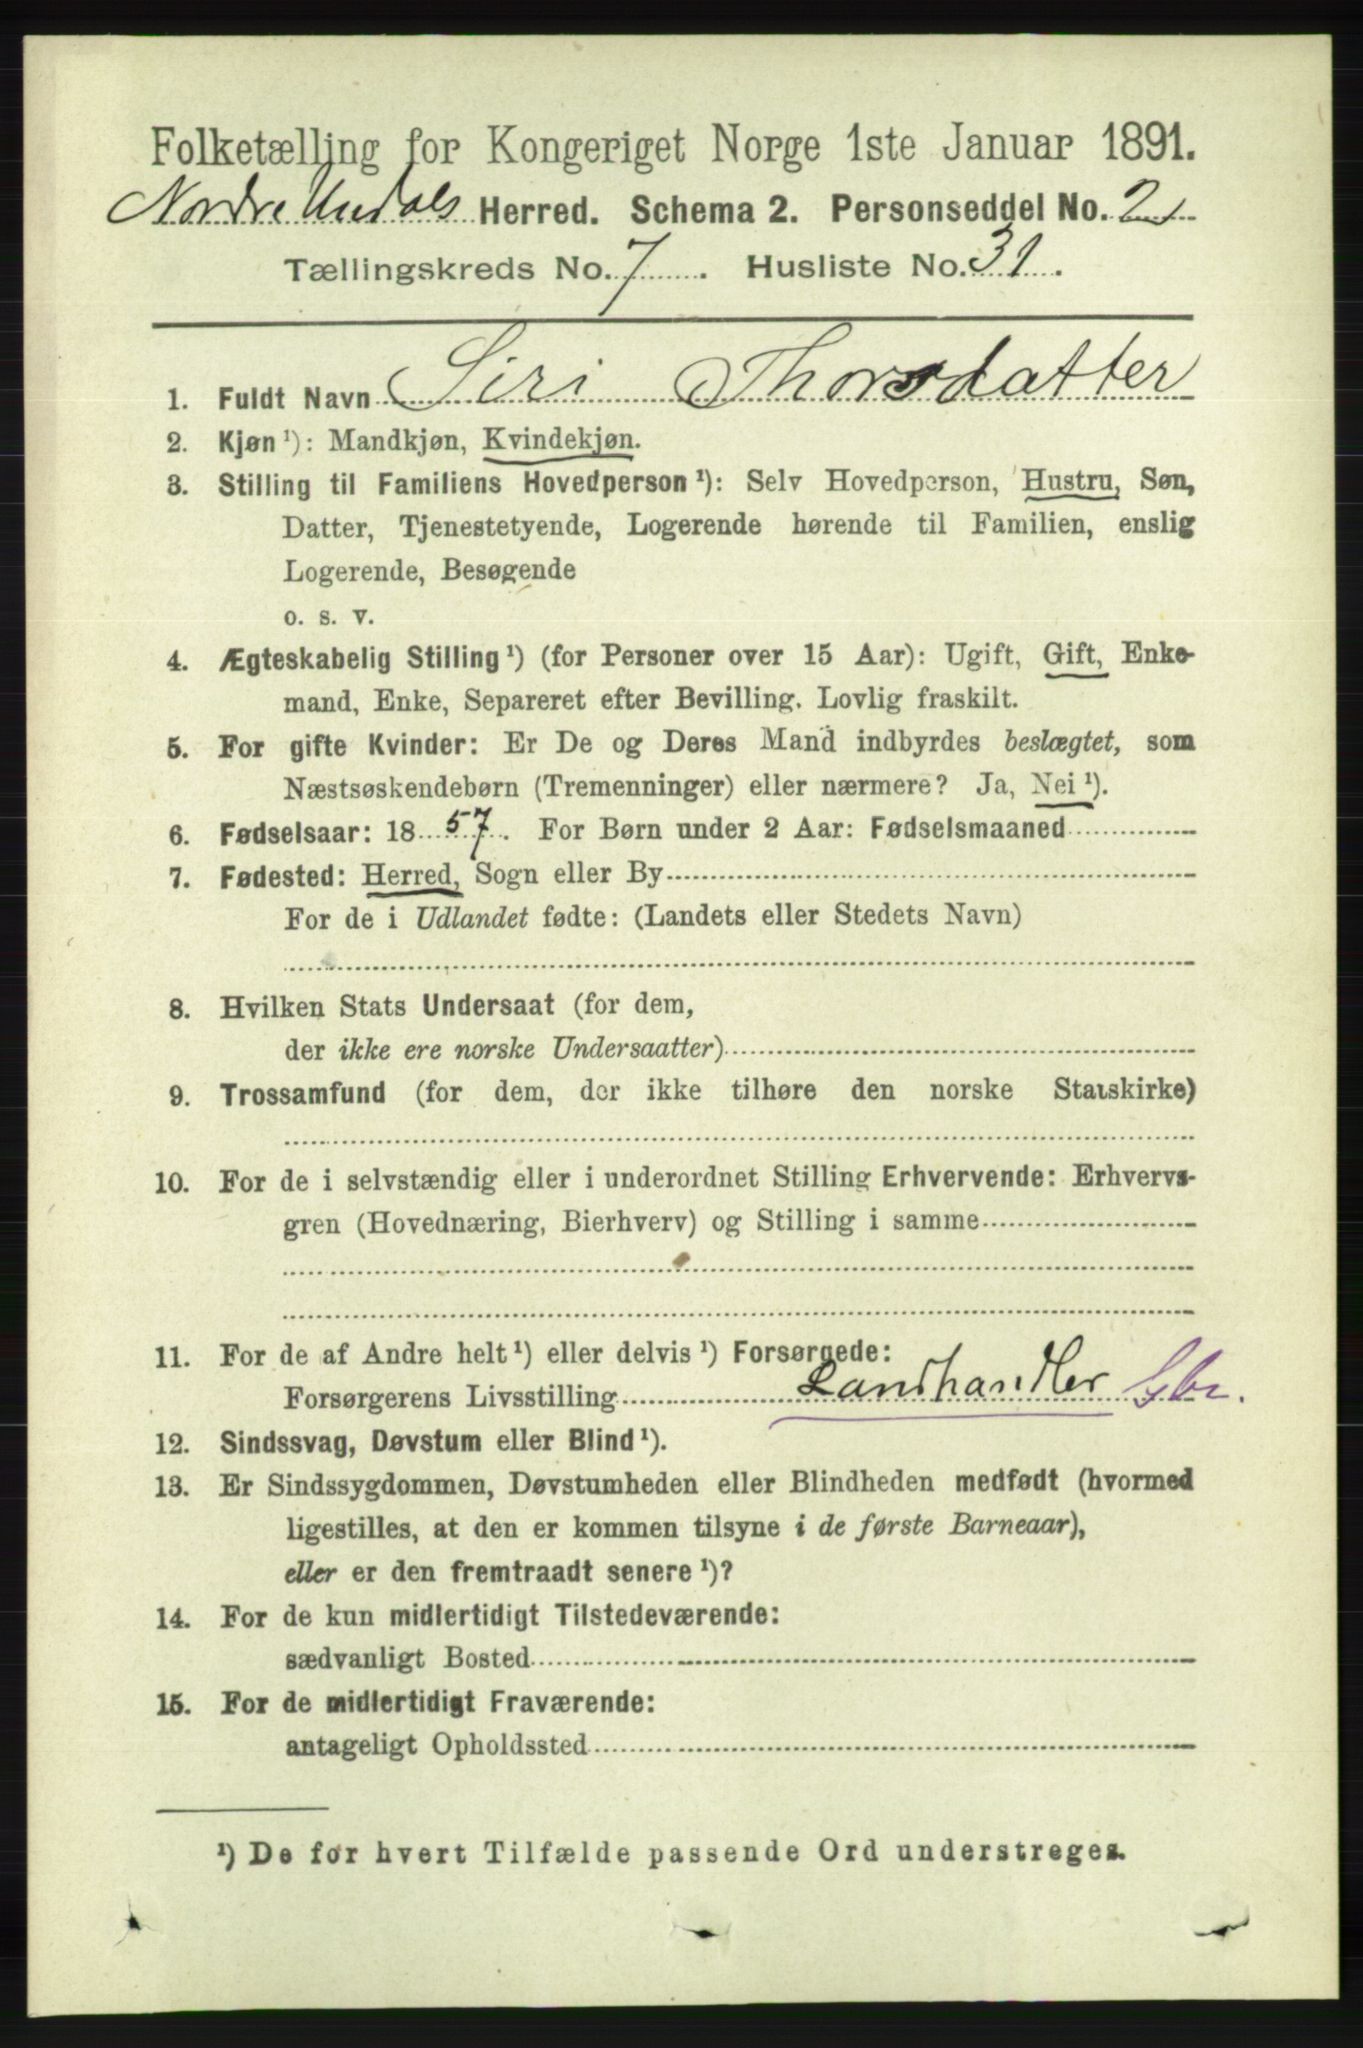 Folketælling for Kongeriget Norge 1ste Januar 1891.
Nordre Undals Herred. Schema 2. Personseddel No. 2
Tællingskreds No. 7. Husliste No. 31.
1. Fuldt Navn Siri Thorsdatter
2. Kjøn ¹): Mandkjøn, Kvindekjøn.
3. Stilling til Familiens Hovedperson ¹): Selv Hovedperson, Hustru, Søn,
Datter, Tjenestetyende, Logerende hørende til Familien, enslig
Logerende, Besøgende
o. s. v.
4. Ægteskabelig Stilling ¹) (for Personer over 15 Aar): Ugift, Gift, Enke-
mand, Enke, Separeret efter Bevilling. Lovlig fraskilt.
5. For gifte Kvinder: Er De og Deres Mand indbyrdes beslægtet, som
Næstsøskendebørn (Tremenninger) eller nærmere? Ja, Nei ¹).
6. Fødselsaar: 1857. For Børn under 2 Aar: Fødselsmaaned
7. Fødested: Herred, Sogn eller By
For de i Udlandet fødte: (Landets eller Stedets Navn)
8. Hvilken Stats Undersaat (for dem,
der ikke ere norske Undersaatter)
9. Trossamfund (for dem, der ikke tilhøre den norske Statskirke)
10. For de i selvstændig eller i underordnet Stilling Erhvervende: Erhvervs-
gren (Hovednæring, Bierhverv) og Stilling i samme
11. For de af Andre helt ¹) eller delvis ¹) Forsørgede:
Forsørgerens Livsstilling Landhandler Gbr.
12. Sindssvag, Døvstum eller Blind ¹).
13. Er Sindssygdommen, Døvstumheden eller Blindheden medfødt (hvormed
ligestilles, at den er kommen tilsyne i de første Barneaar),
eller er den fremtraadt senere ¹)?
14. For de kun midlertidigt Tilstedeværende:
sædvanligt Bosted
15. For de midlertidigt Fraværende:
antageligt Opholdssted
¹) De for hvert Tilfælde passende Ord understreges.